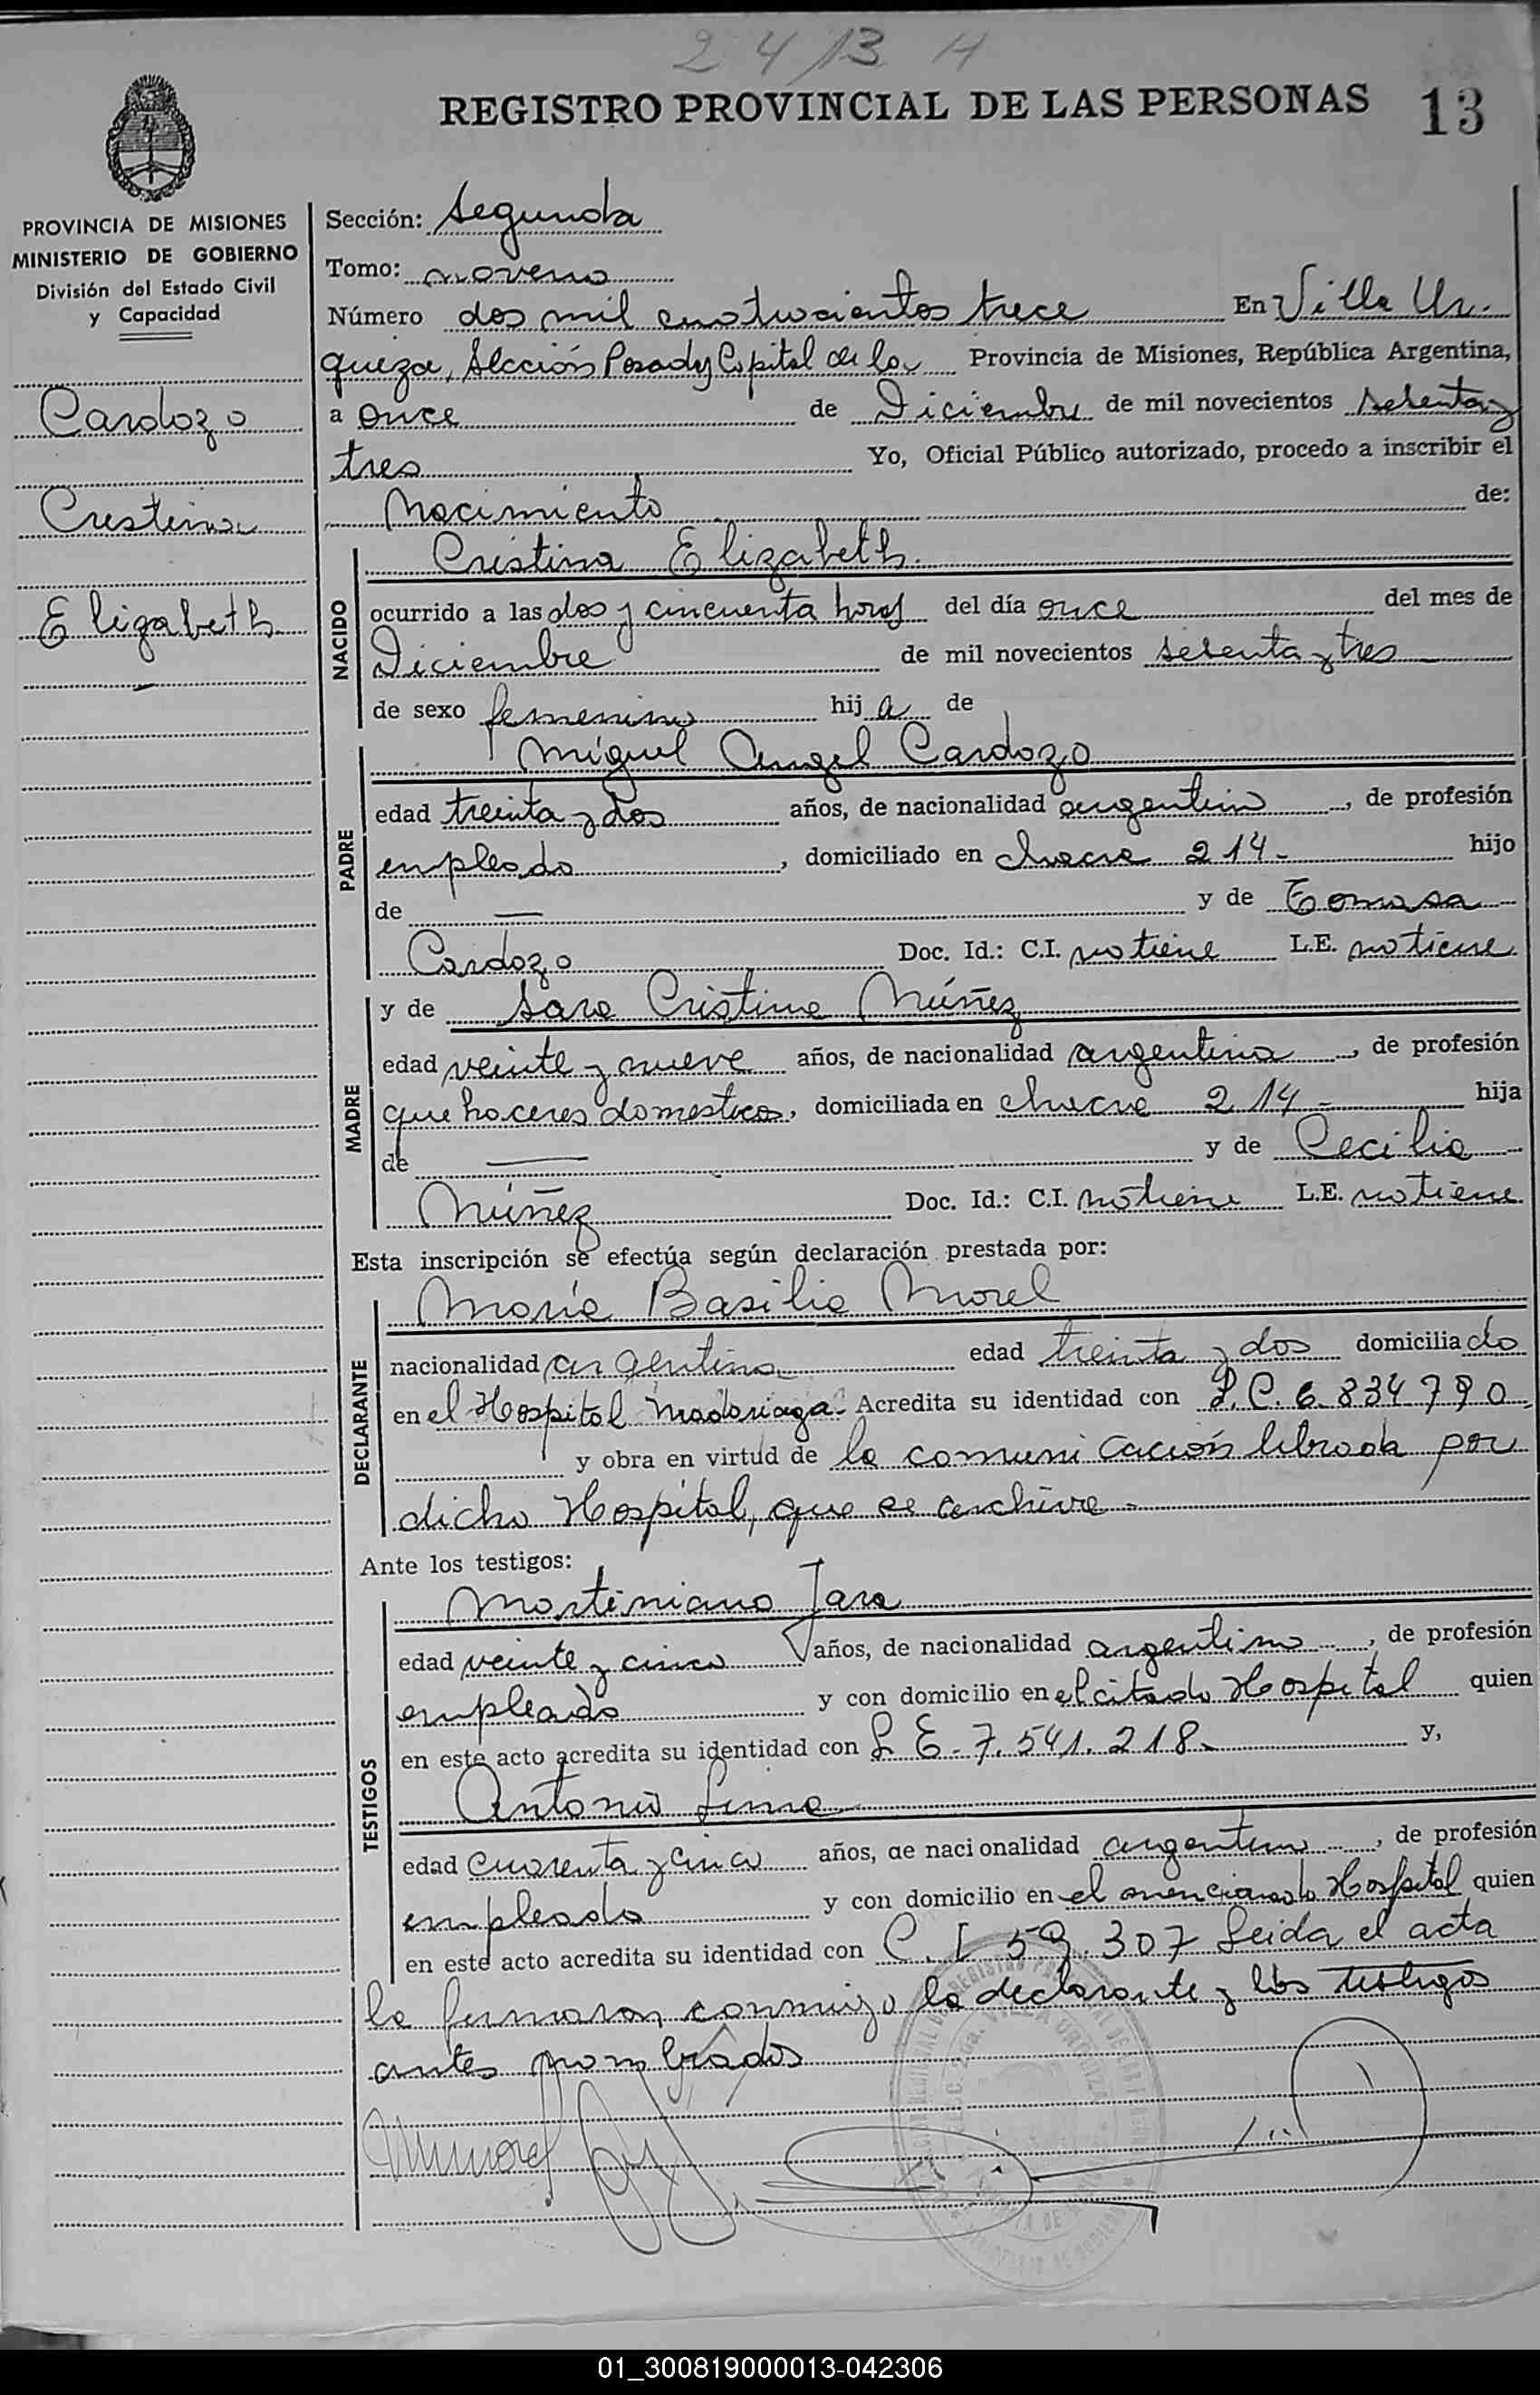 2413 H
REGISTRO PROVINCIAL DE LAS PERSONAS 13
PROVINCIA DE MISIONES
MINISTERIO DE GOBIERNO
División del Estado Civil
y Capacidad
Cardozo
Cristina
Elizabeth
Sección: Segunda
Tomo: noveno
Número dos mil cuatrocientos trece En Villa Ur-
quiza, Sección Posadas Capital de la Provincia de Misiones, República Argentina,
a once de Diciembre de mil novecientos setenta y
tres Yo, Oficial Público autorizado, procedo a inscribir el
Nacimiento de:
NACIDO
Cristina Elizabeth.
ocurrido a las dos y cincuenta horas del día once del mes de
Diciembre de mil novecientos setenta y tres
de sexo femenino hij a de
PADRE
Miguel Angel Cardozo
edad treinta y dos años, de nacionalidad argentino, de profesión
empleado, domiciliado en chacra 214- hijo
de — y de Tomasa
Cardozo Doc. Id.: C.I. no tiene L.E. no tiene
MADRE
y de Sara Cristina Núñez
edad veinte y nueve años, de nacionalidad argentina, de profesión
que haceres domesticos, domiciliada en chacra 214- hija
de — y de Cecilia
Núñez Doc. Id.: C.I. no tiene L.E. no tiene
Esta inscripción se efectúa según declaración prestada por:
DECLARANTE
María Basilia Morel
nacionalidad argentina edad treinta y dos domicilia do
en el Hospital Madariaga- Acredita su identidad con L.C. 6.834.790
y obra en virtud de la comunicación librada por
dicho Hospital, que se archiva-
Ante los testigos:
TESTIGOS
Martiniano Jara
edad veinte y cinco años, de nacionalidad argentino, de profesión
empleado y con domicilio en el citado Hospital quien
en este acto acredita su identidad con L E- 7.541.218- y,
Antonio Lima
edad cuarenta y cinco años, de nacionalidad argentino, de profesión
empleado y con domicilio en el mencionado Hospital quien
en este acto acredita su identidad con C. I 59.307 Leida el acta
la firmaron conmigo la declarante y los testigos
antes nombrados
MMorel
01_300819000013-042306